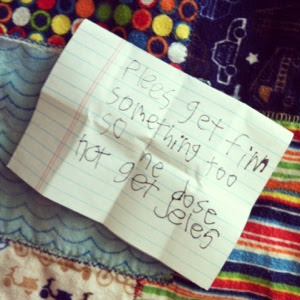 plees get finn
something too
so he dose
not get jeles